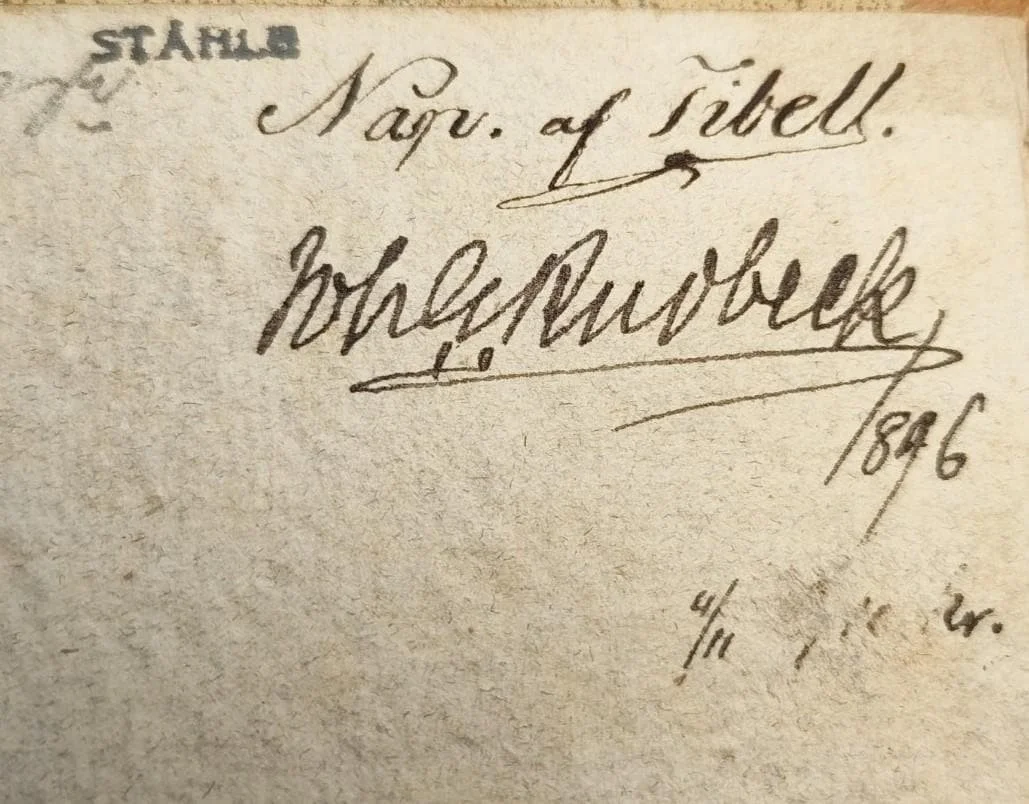 STÅHLE
Nap. af Tibell.
Joh. G. Rudbeck
1896
4/11 kr.